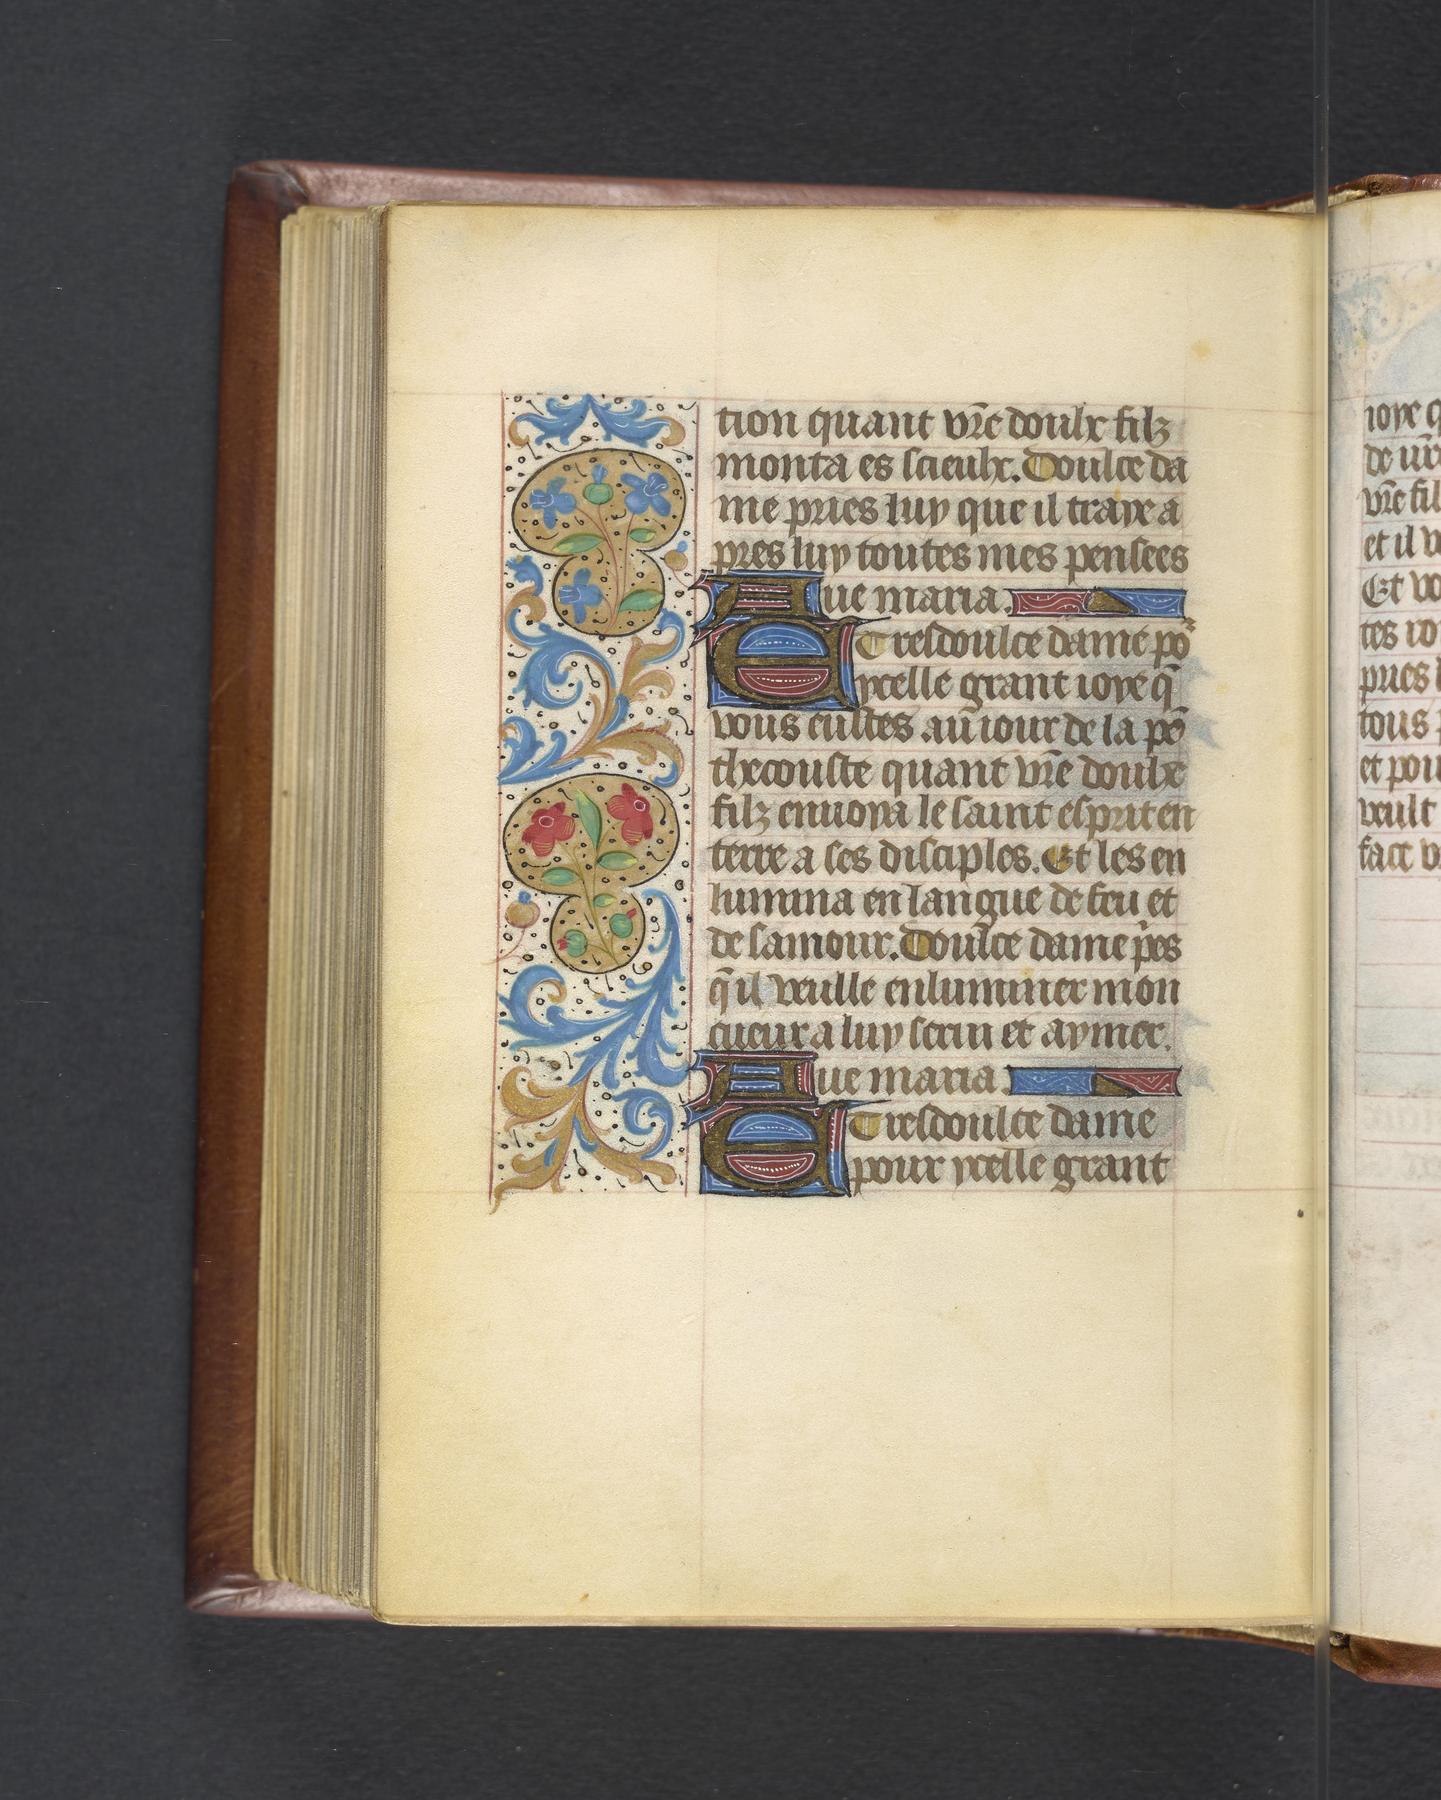 tion quant vr̄e doulx filz
monta es scieulx. Doulce da
me pries luy que il traye a
pres luy toutes mes pensees
Aue maria.
E Tresdoulce dame po᷑
ycelle grant ioye q̄
vous eustes au iour de la pē
thecouste quant vr̄e doulx
filz enuoya le saint esprit en
terre a ses disciples. Et les en
lumina en langue de feu et
de samour. Doulce dame p̄es
q̄ il veulle enluminer mon
cueur a luy seruir et aymer.
Aue maria.
E Tresdoulce dame
pour ycelle grant
ioye q
de vr̄e
vr̄e fil
et il v
Et vo
tes io
pries l
tous p
et pou
veult
face v